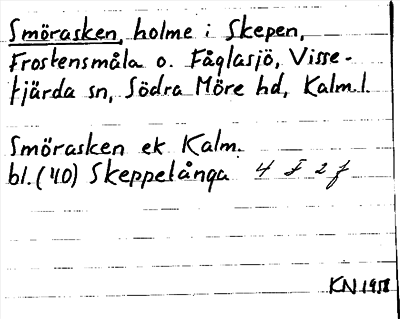 Smörasken, holme i Skepen,
Frostensmåla o. Fåglasjö, Visse-
fjärda sn, Södra Möre hd, Kalm.l.
Smörasken ek Kalm.
bl. (40) Skeppelånga 4 F 2 f
KN 1958